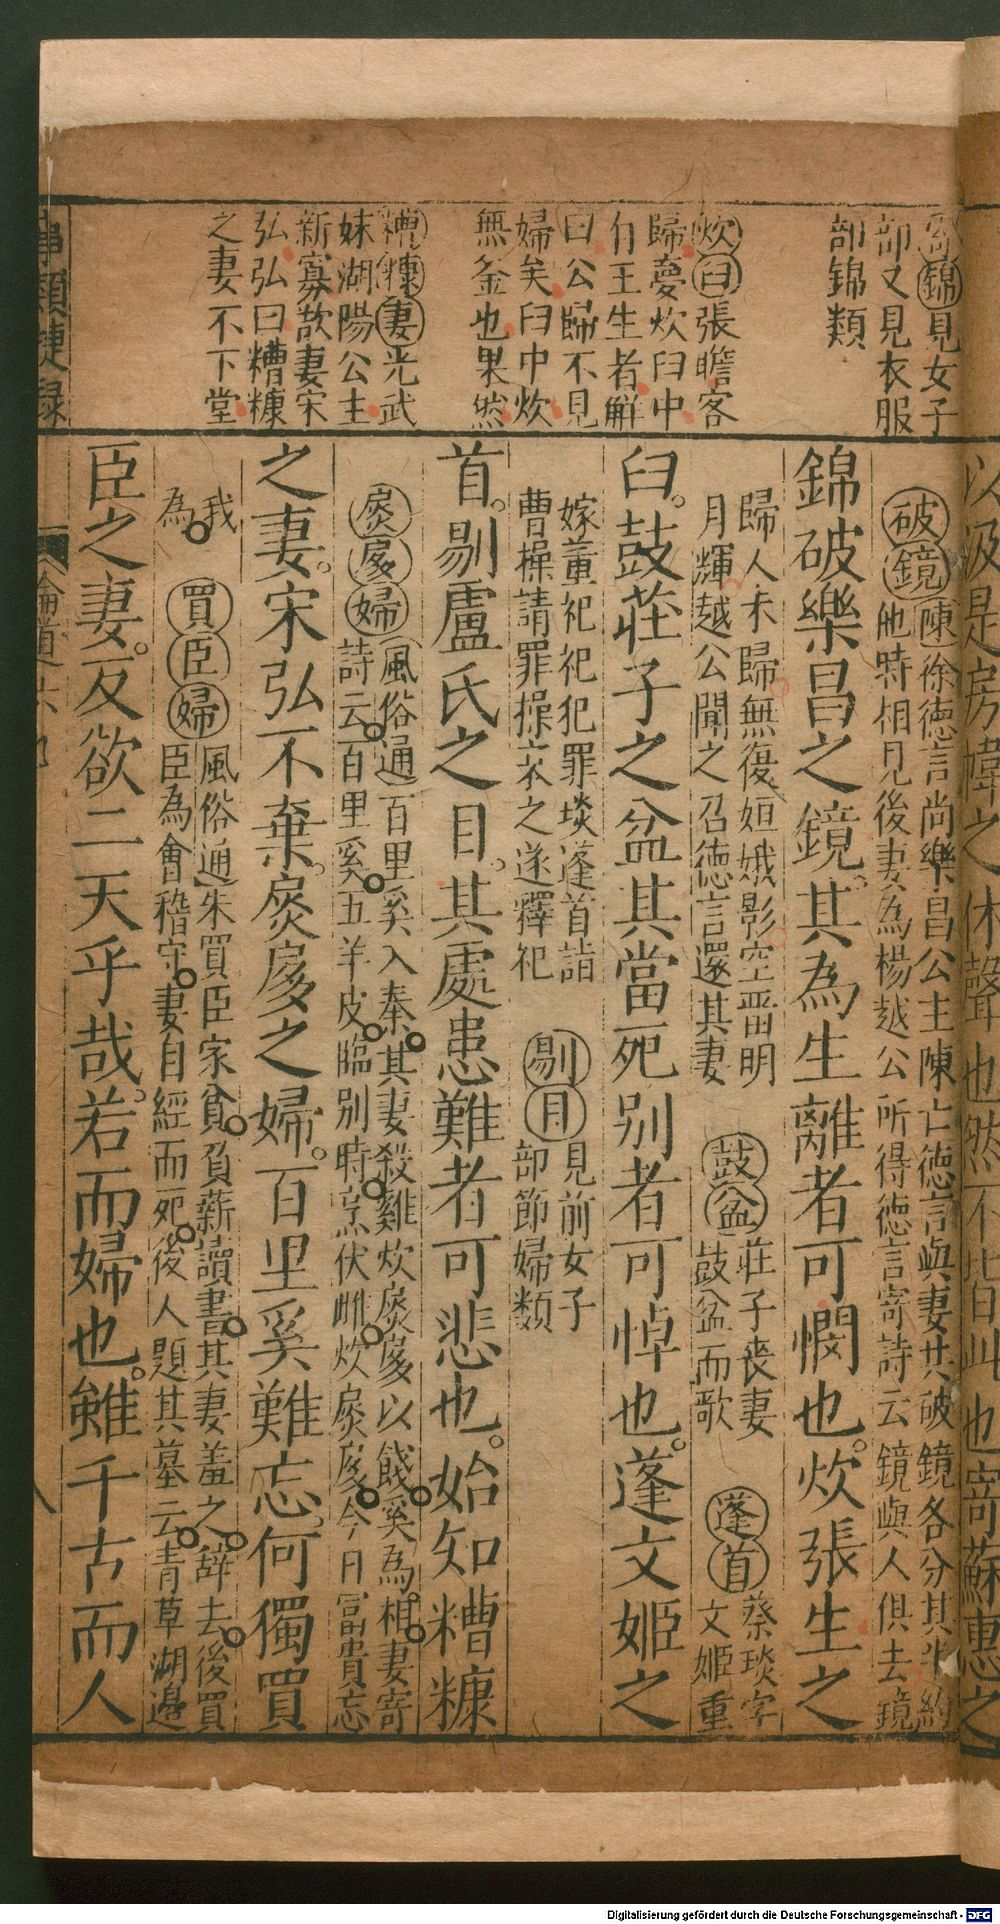 寄錦見女子
部又見衣服
部錦類
炊臼張瞻客
歸夢炊臼中
有王生者解
曰公歸不見
婦矣臼中炊
無釜也果然
糟糠妻光武
妹湖陽公主
新寡故妻宋
弘弘曰糟糠
之妻不下堂
事類捷録
以汲是房幃之休聲也然不
也寄蘇惠之
破鏡陳徐德言尚樂昌公主陳亡德言與妻共破鏡各分其半約
他時相見後妻為楊越公所得德言寄詩云鏡與人俱去鏡
錦破樂昌之鏡其為生離者可憫也炊張生之
歸人未歸無復姮娥影空畱明
月輝越公聞之召德言還其妻
鼓盆莊子喪妻
鼓盆而歌
蓬首蔡琰字
文姬重
臼鼓莊子之盆其當死別者可悼也蓬文姬之
嫁董祀祀犯罪琰蓬首詣
曹操請罪操哀之遂釋祀
剔目見前女子
部節婦類
首剔盧氏之目其處患難者可悲也始知糟糠
扊扅婦風俗通百里奚入秦其妻殺雞炊扊扅以餞奚為相妻寄
詩云百里奚五羊皮臨別時烹伏雌炊扊扅今日富貴忘
之妻宋弘不棄扊扅之婦百里奚難忘何獨買
我
為
買臣婦風俗通朱買臣家貧負薪讀書其妻羞之辭去後買
臣為會稽守妻自經而死後人題其墓云青草湖邊
臣之妻反欲二天乎哉若而婦也雖千古而人
倫道
八
Digitalisierung gefördert durch die Deutsche Forschungsgemeinschaft - DFG